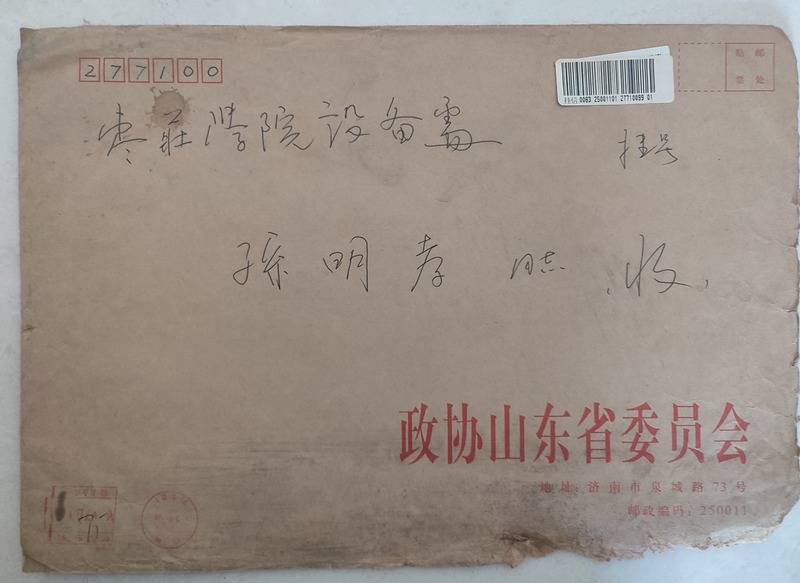 277100
贴邮
票处
挂信 0083 25001101 27710099 01
枣莊学院设备處
挂号
孫明孝 同志 收
政协山东省委员会
地址:济南市泉城路73号
邮政编码:250011